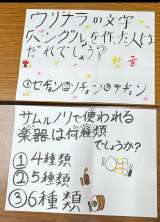 ウリナラの文字
「ハングル」を作った人は
だれでしょう?
한글
①セヂョン②ソヂョン③チヂョン
サムルノリで使われる
楽器は何種類
でしょうか?
①4種類
②5種類
③6種類